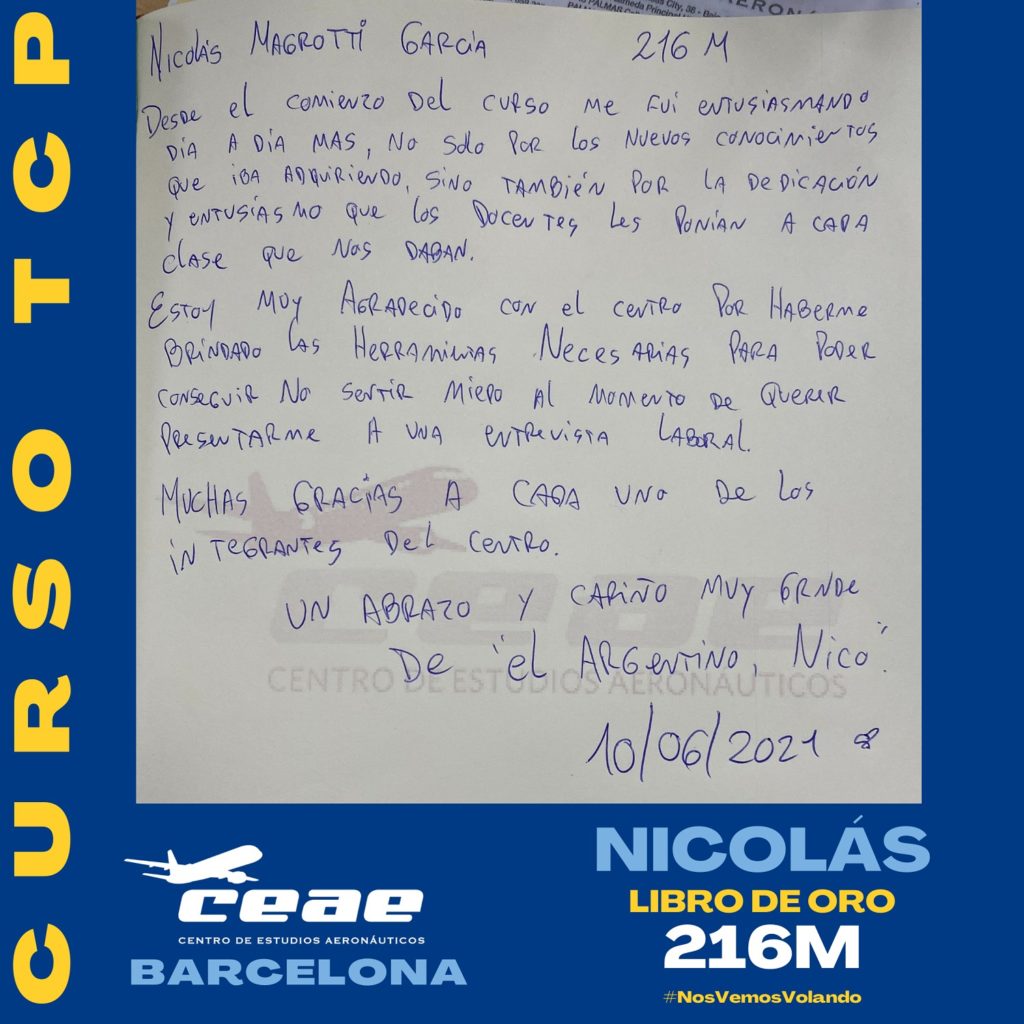 CURSO TCP
Nicolás Magrotti García 216 M
Desde el comienzo del curso me fui entusiasmando
día a día mas, no solo por los nuevos conocimientos
que iba adquiriendo, sino también por la dedicación
y entusiasmo que los docentes les ponían a cada
clase que nos daban.
Estoy muy agradecido con el centro por haberme
brindado las herramientas necesarias para poder
conseguir no sentir miedo al momento de querer
presentarme a una entrevista laboral.
Muchas gracias a cada uno de los
integrantes del centro.
Un abrazo y cariño muy grnde
De "el Argentino, Nico".
10/06/2021
ceae
CENTRO DE ESTUDIOS AERONÁUTICOS
ceae
CENTRO DE ESTUDIOS AERONÁUTICOS
BARCELONA
NICOLÁS
LIBRO DE ORO
216M
#NosVemosVolando